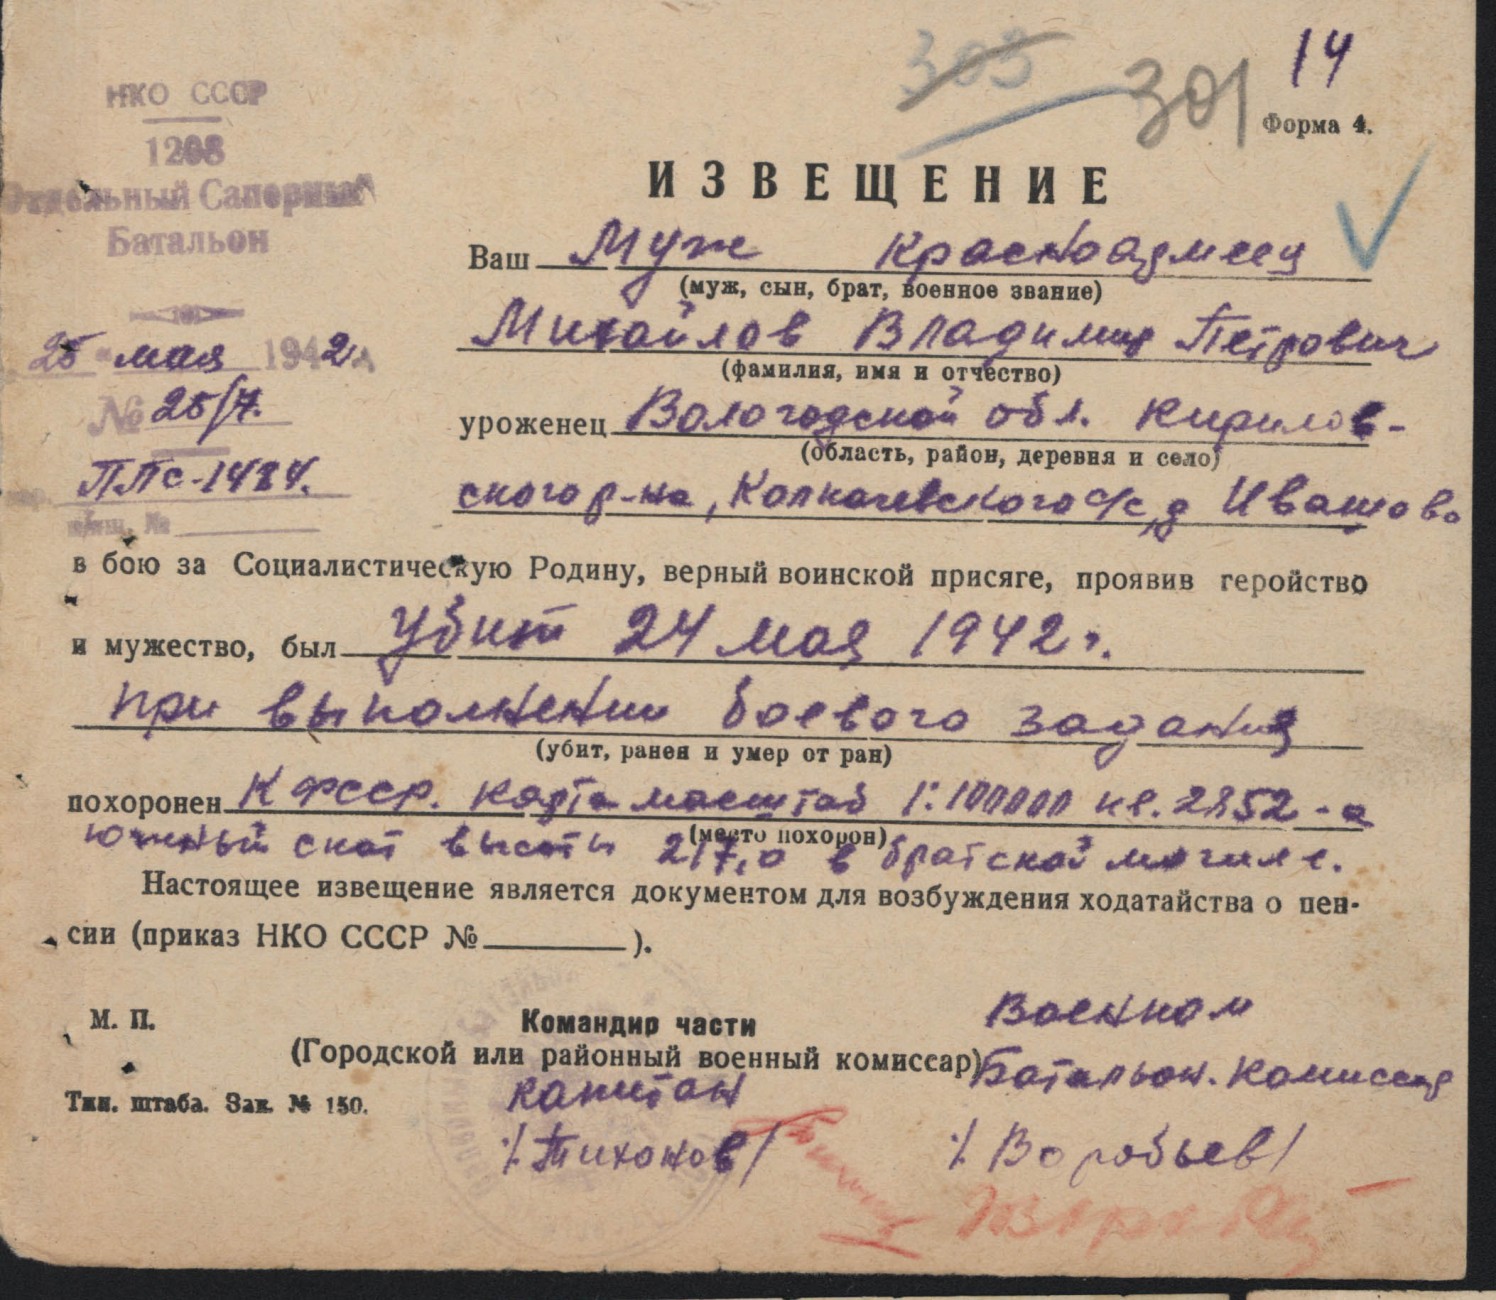 303
301
14
Форма 4.
НКО СССР
1208
Отдельный Саперный
Батальон
25 " мая 1942
№ 25/7.
ППС-1484.
ИЗВЕЩЕНИЕ
Ваш Муж красноармеец
(муж, сын, брат, военное звание)
Михайлов Владимир Петрович
(фамилия, имя и отчество)
уроженец Вологодской обл. Кирилов-
(область, район, деревня и село)
ского р-на, Колкачевского с/с, д Ивашово
в бою за Социалистическую Родину, верный воинской присяге, проявив геройство
и мужество, был убит 24 мая 1942 г.
при выполнении боевого задания
(убит, ранен и умер от ран)
похоронен КФССР. карта масштаб 1:100000 кв. 2852-а
(место похорон)
южный скат высоты 217,0 в братской могиле.
Настоящее извещение является документом для возбуждения ходатайства о пен-
сии (приказ НКО СССР № ).
М. П.
Командир части
(Городской или районный военный комиссар)
Военком
Батальон. комиссар
капитан
/Тихонов/
/Воробьев/
Тип. штаба. Зак. № 150.